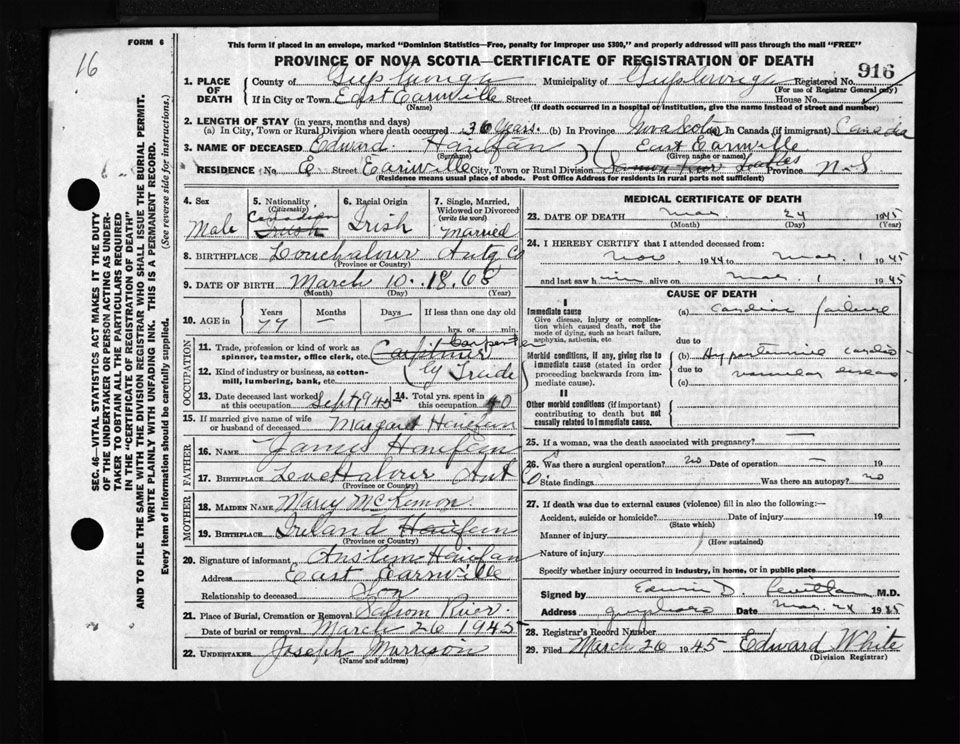 16
FORM 6
This form if placed in an envelope, marked "Dominion Statistics—Free, penalty for improper use $300," and properly addressed will pass through the mail "FREE"
PROVINCE OF NOVA SCOTIA—CERTIFICATE OF REGISTRATION OF DEATH
916
1. PLACE OF DEATH
County of
Municipality of
Registered No.
(For use of Registrar General only)
If in City or Town East Earnville Street House No.
(Name) (If death occurred in a hospital or institution, give the name instead of street and number)
2. LENGTH OF STAY (in years, months and days)
(a) In City, Town or Rural Division where death occurred 36 years. (b) In Province Nova Scotia (c) In Canada (if immigrant) Canada
3. NAME OF DECEASED Edward Hanifan East Earnville
(Surname) (Given name or names)
RESIDENCE No. E. Street Earnville City, Town or Rural Division Province N-S
(Residence means usual place of abode. Post Office Address for residents in rural parts not sufficient)
4. Sex
Male
5. Nationality (Citizenship)
Canadian
Irish
6. Racial Origin
Irish
7. Single, Married, Widowed or Divorced (write the word)
Married
8. BIRTHPLACE Antg Co
(Province or County)
9. DATE OF BIRTH March 10. 1868
(Month) (Day) (Year)
10. AGE in Years Months Days If less than one day old
77 — hrs. or min.
OCCUPATION
11. Trade, profession or kind of work as spinner, teamster, office clerk, etc. Carpenter
12. Kind of industry or business, as cotton-mill, lumbering, bank, etc. by Trade
13. Date deceased last worked at this occupation Sept 1943
14. Total yrs. spent in this occupation 40
15. If married give name of wife or husband of deceased Margaret Hanifan
FATHER
16. NAME James Hanifan
17. BIRTHPLACE Ant Co
(Province or County)
MOTHER
18. MAIDEN NAME Mary McKemon
19. BIRTHPLACE Ireland Hanifan
(Province or County)
20. Signature of informant Hanifan
Address East Earnville
Relationship to deceased Son
21. Place of Burial, Cremation or Removal Salmon River.
Date of burial or removal March 26 1945
22. UNDERTAKER Joseph Morrison
(Name and address)
MEDICAL CERTIFICATE OF DEATH
23. DATE OF DEATH Mar. 24 1945
(Month) (Day) (Year)
24. I HEREBY CERTIFY that I attended deceased from:
Nov. 1944 to Mar. 1 1945
and last saw him alive on Mar 1 1945
CAUSE OF DEATH
I
Immediate cause
Give disease, injury or complication which caused death, not the mode of dying, such as heart failure, asphyxia, asthenia, etc.
(a) cardiac failure
due to
Morbid conditions, if any, giving rise to immediate cause (stated in order proceeding backwards from immediate cause).
(b) Hypertensive cardio
due to vascular disease
(c)
II
Other morbid conditions (if important) contributing to death but not causally related to immediate cause.
25. If a woman, was the death associated with pregnancy? —
26. Was there a surgical operation? no Date of operation — 19
State findings Was there an autopsy? no
27. If death was due to external causes (violence) fill in also the following:—
Accident, suicide or homicide? Date of injury 19
(State which)
Manner of injury
(How sustained)
Nature of injury
Specify whether injury occurred in industry, in home, or in public place
Signed by Edwin D. M.D.
Address Guysboro Date Mar. 24 1945
28. Registrar's Record Number
29. Filed March 26 1945 Edward White
(Division Registrar)
SEC. 46—VITAL STATISTICS ACT MAKES IT THE DUTY
OF THE UNDERTAKER OR PERSON ACTING AS UNDERTAKER
TO OBTAIN ALL THE PARTICULARS REQUIRED
IN THE "CERTIFICATE OF REGISTRATION OF DEATH"
AND TO FILE THE SAME WITH THE DIVISION REGISTRAR WHO SHALL ISSUE THE BURIAL PERMIT.
WRITE PLAINLY WITH UNFADING INK. THIS IS A PERMANENT RECORD.
Every item of information should be carefully supplied. (See reverse side for instructions.)